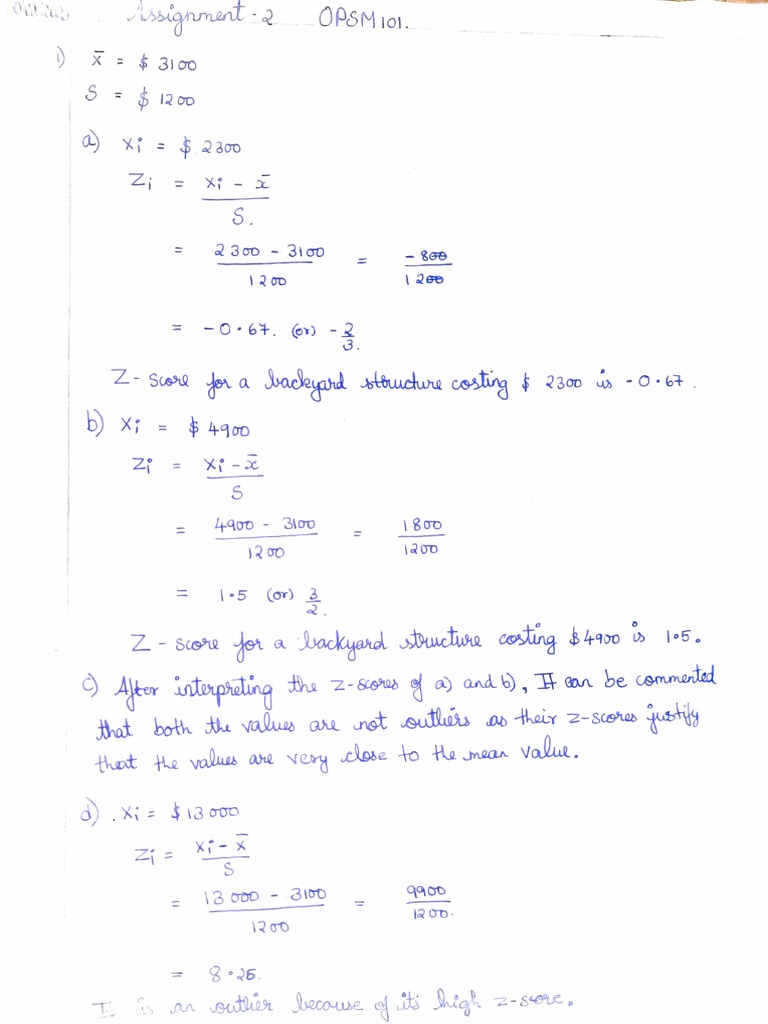 Assignment - 2 OPSM101.
1) x̄ = $ 3100
S = $ 1200
a) xi = $ 2300
Zi = xi - x̄ / S.
= 2300 - 3100 / 1200 = -800 / 1200
= -0.67. (or) -2/3.
Z-score for a backyard structure costing $ 2300 is -0.67.
b) xi = $ 4900
Zi = xi - x̄ / S
= 4900 - 3100 / 1200 = 1800 / 1200
= 1.5 (or) 3/2.
Z-score for a backyard structure costing $4900 is 1.5.
c) After interpreting the z-scores of a) and b), It can be commented
that both the values are not outliers as their z-scores justify
that the values are very close to the mean value.
d) . xi = $ 13000
Zi = xi - x̄ / S
= 13000 - 3100 / 1200 = 9900 / 1200.
= 8.25.
It is an outlier because of its high z-score.